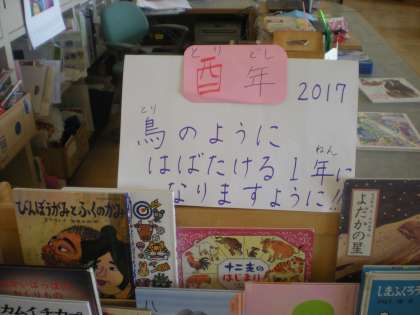 とり とし
酉 年
2017
とり
鳥のように
はばたける1年に
ねん
なりますように!!
びんぼうがみとふくのかみ
十二支の
はじまり
よだかの星
しまふくろう
カムイチカプ